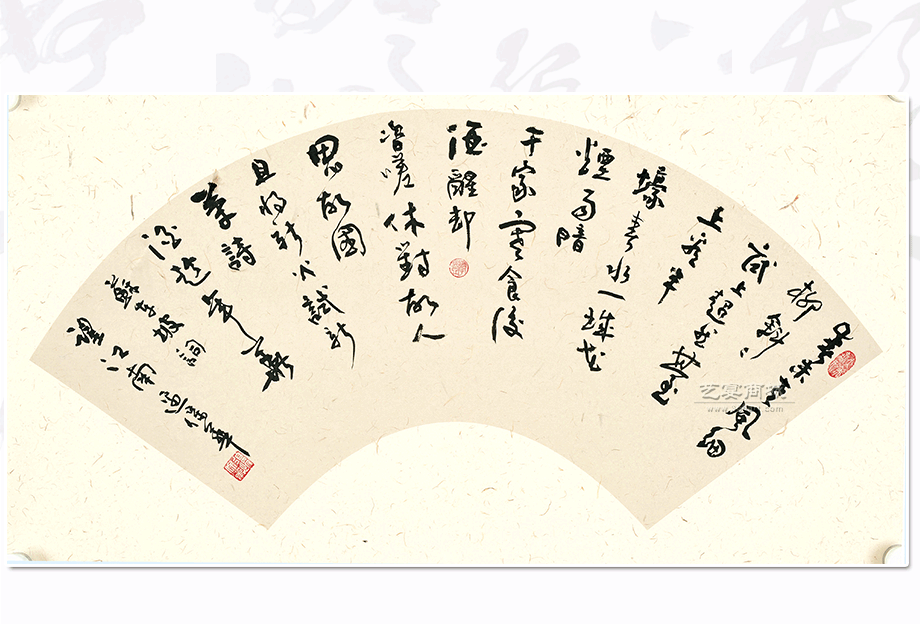 春未老風細
柳斜〻
試上超然臺
上看半
壕春水一城花
煙雨暗
千家寒食後
酒醒却
咨嗟休對故人
思故國
且將新火試新
茶詩
酒趁年華
蘇東坡詞
望江南
艺宴商城